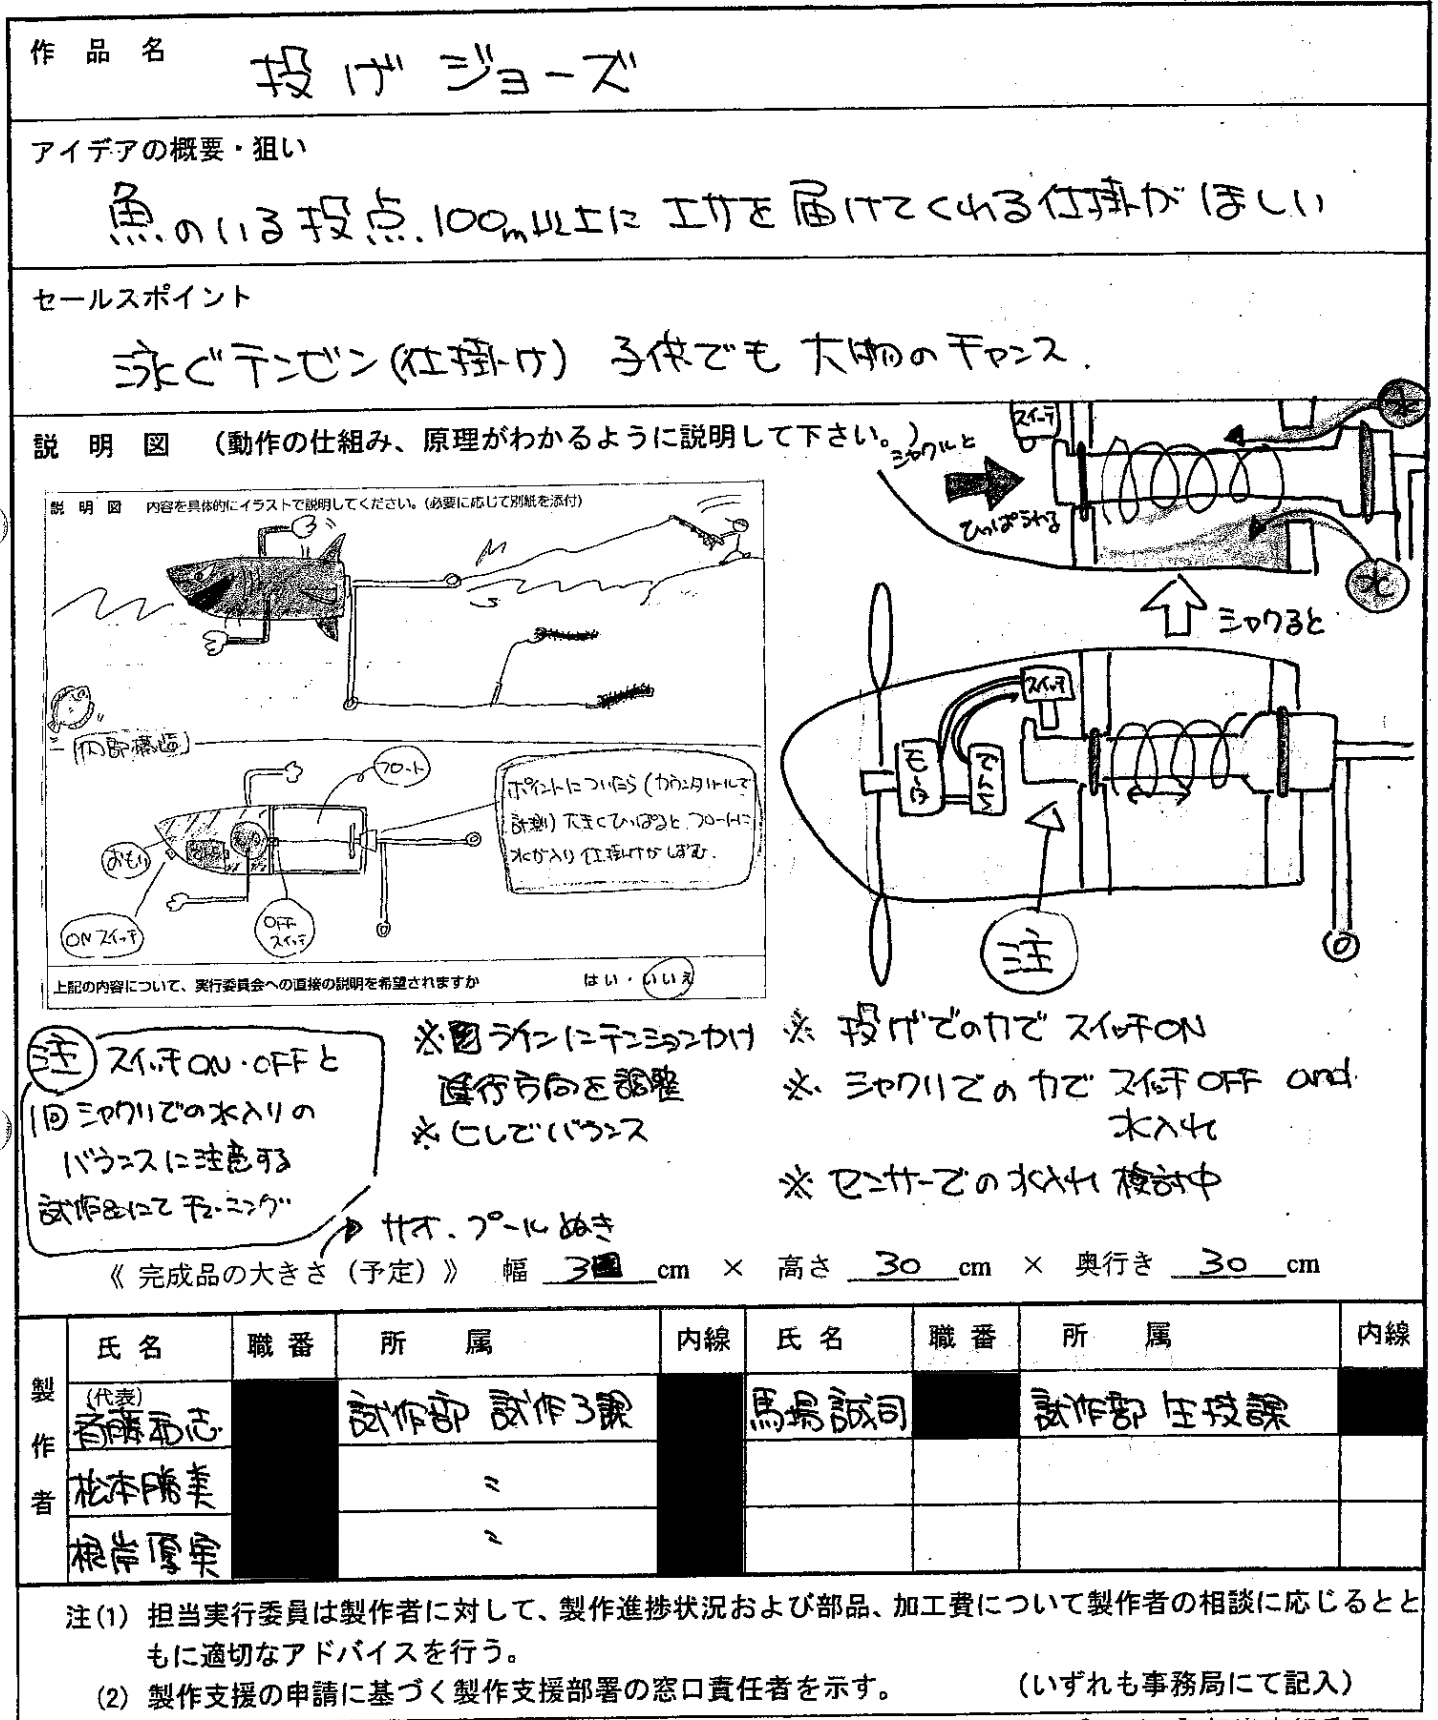 作品名
投げジョーズ
アイデアの概要・狙い
魚のいる投点.100m以上にエサを届けてくれる仕掛がほしい
セールスポイント
泳ぐテンビン(仕掛け) 子供でも大物のチャンス.
説明図 (動作の仕組み、原理がわかるように説明して下さい。)
スイッチ
水
シャクルと
ひっぱられる
水
シャクると
説明図 内容を具体的にイラストで説明してください。(必要に応じて別紙を添付)
内部構造
フロート
おもり
ONスイッチ
OFFスイッチ
ポイントについたら(カウンタリールで
計測)大きくひっぱると、フロートに
水が入り仕掛けがしずむ.
上記の内容について、実行委員会への直接の説明を希望されますか はい・いいえ
スイッチ
モータ
でんち
注
注 スイッチON・OFFと
1回シャクリでの水入りの
バランスに注意する
試作品にてチューニング
サオ、プールぬき
※ラインにテンションかけ
進行方向を調整
※ヒレでバランス
※ 投げでの力でスイッチON
※ シャクリでの力でスイッチOFF and
水入れ
※ センサーでの水入れ 検討中
《完成品の大きさ(予定)》 幅 3 cm × 高さ 30 cm × 奥行き 30 cm
製作者
氏名 職番 所属 内線 氏名 職番 所属 内線
(代表)
斉藤和志 試作部 試作3課 馬場誠司 試作部 生技課
松本勝美 〃
根岸厚実 〃
注(1) 担当実行委員は製作者に対して、製作進捗状況および部品、加工費について製作者の相談に応じるとと
もに適切なアドバイスを行う。
(2) 製作支援の申請に基づく製作支援部署の窓口責任者を示す。 (いずれも事務局にて記入)